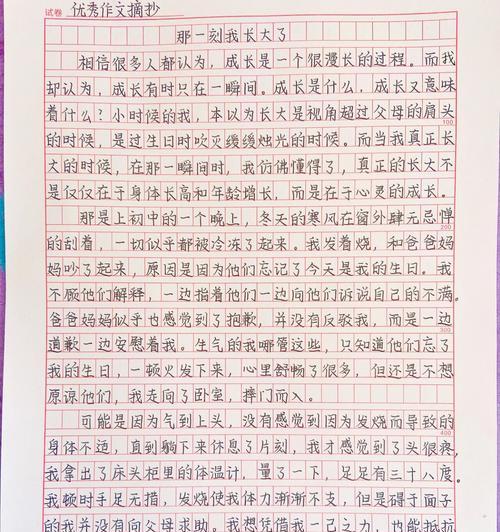 试卷 优秀作文摘抄
那一刻我长大了
相信很多人都认为，成长是一个很漫长的过程。而我
却认为，成长有时只在一瞬间。成长是什么，成长又意味
着什么？小时候的我，本以为长大是视角超过父母的肩头
100
的时候，是过生日时吹灭缓缓烛光的时候。而当我真正长
大的时候，在那一瞬间时，我仿佛懂得了，真正的长大不
是仅仅在于身体长高和年龄增长，而是在于心灵的成长。
那是上初中的一个晚上，冬天的寒风在窗外肆无忌惮
200
的刮着，一切似乎都被冷冻了起来。我发着烧，和爸爸妈
妈吵了起来，原因是因为他们忘记了今天是我的生日。我
不顾他们解释，一边指着他们一边向他们诉说自己的不满。
爸爸妈妈似乎也感觉到了抱歉，并没有反驳我，而是一边
300
道歉一边安慰着我。生气的我哪管这些，只知道他们忘了
我的生日，一顿火发下来，心里舒畅了很多，但还是不想
原谅他们，我走向了卧室，摔门而入。
可能是因为气到上头，没有感觉到因为发烧而导致的
400
身体不适，直到躺下来休息了片刻，我才感觉到了头很疼，
我拿出了床头柜里的体温计，量了一下，足足有三十八度。
我顿时手足无措，发烧使我体力渐渐不支，但是碍于面子
的我并没有向父母求助。我想凭借一己之力，也能抵抗